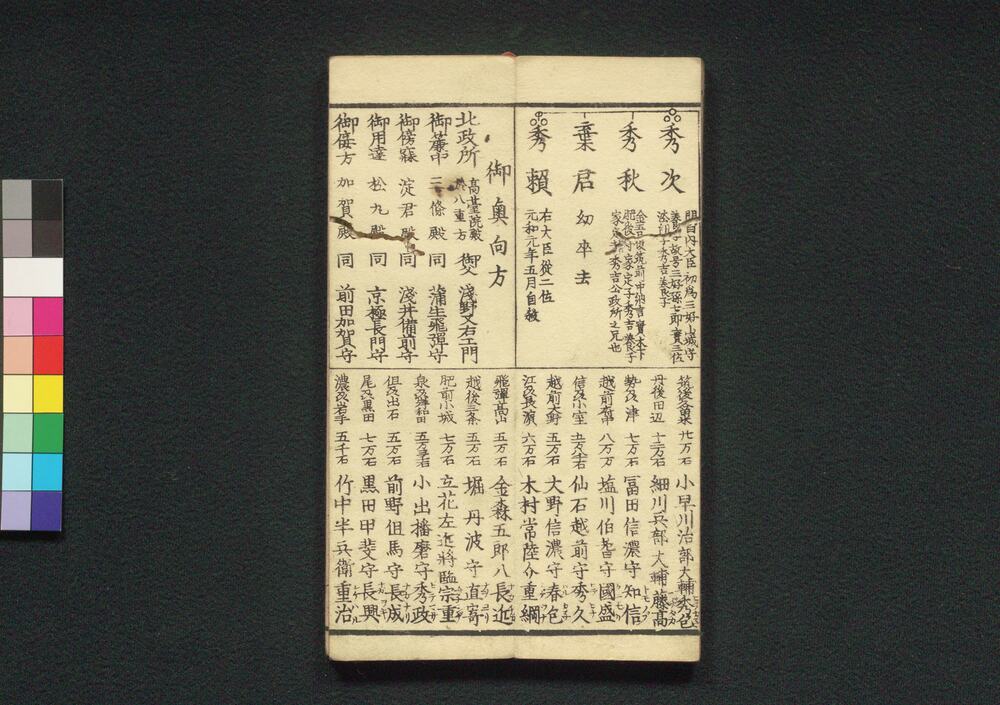 秀次
関白内大臣 初為三好山城守
養子故号三好孫七郎 實三位
法印子秀吉養子
秀秋
金吾 筑前中納言 實木下
肥後守家定子秀吉養子
家定 秀吉公政所之兄也
棄君 幼卒去
秀頼
右大臣従二位
元和元年五月自殺
御奥向方
北政所 高䑓院殿 八重方 御父 淺野又右エ門
御簾中 三條殿 同 蒲生飛彈守
御傍寢 淀君殿 同 淺井備前守
御用達 松丸殿 同 京極長門守
御侫方 加賀殿 同 前田加賀守
筑後久留米 廿万石 小早川治部大輔秀包
丹後田辺 十二万石 細川兵部大輔藤高
勢及津 七万石 冨田信濃守知信
越前 八万万 塩川伯耆守國盛
信及小室 五万石 仙石越前守秀久
越前大野 五万石 大野信濃守春包
江及長濵 六万石 木村常陸介重綱
飛彈高山 五万石 金森五郎八長近
越後三条 五万石 堀丹波守直寄
肥前小城 七万石 立花左近將監宗重
泉及岸和田 五万石 小出播磨守秀政
但及出石 五万石 前野但馬守長成
尾及黒田 七万石 黒田甲斐守長興
濃及岩手 五千石 竹中半兵衛重治